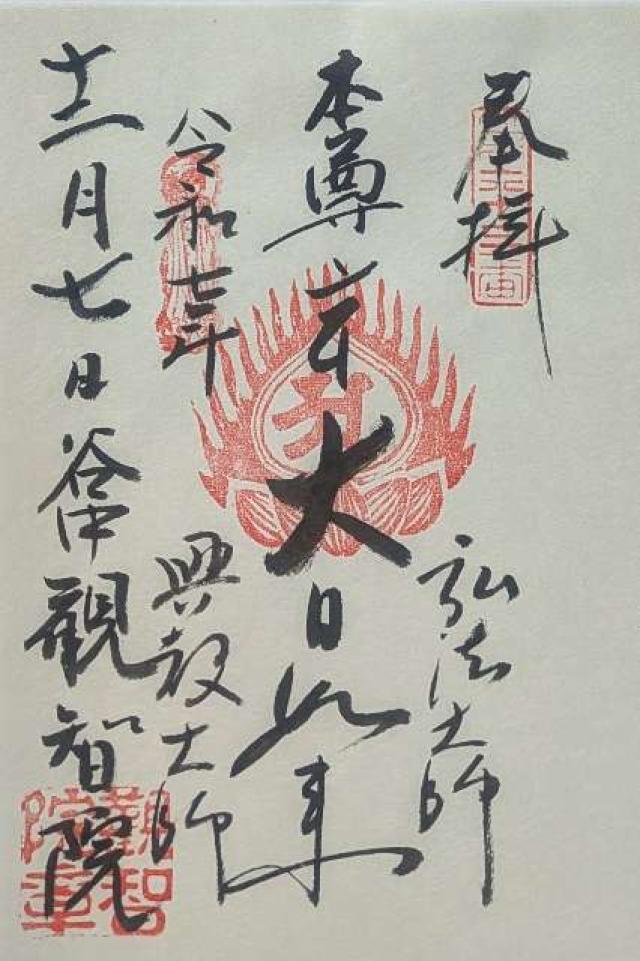 奉拝
弘法大師
本尊大日如来
令和七年
興教大師
十二月七日谷中觀智院
觀智
院章